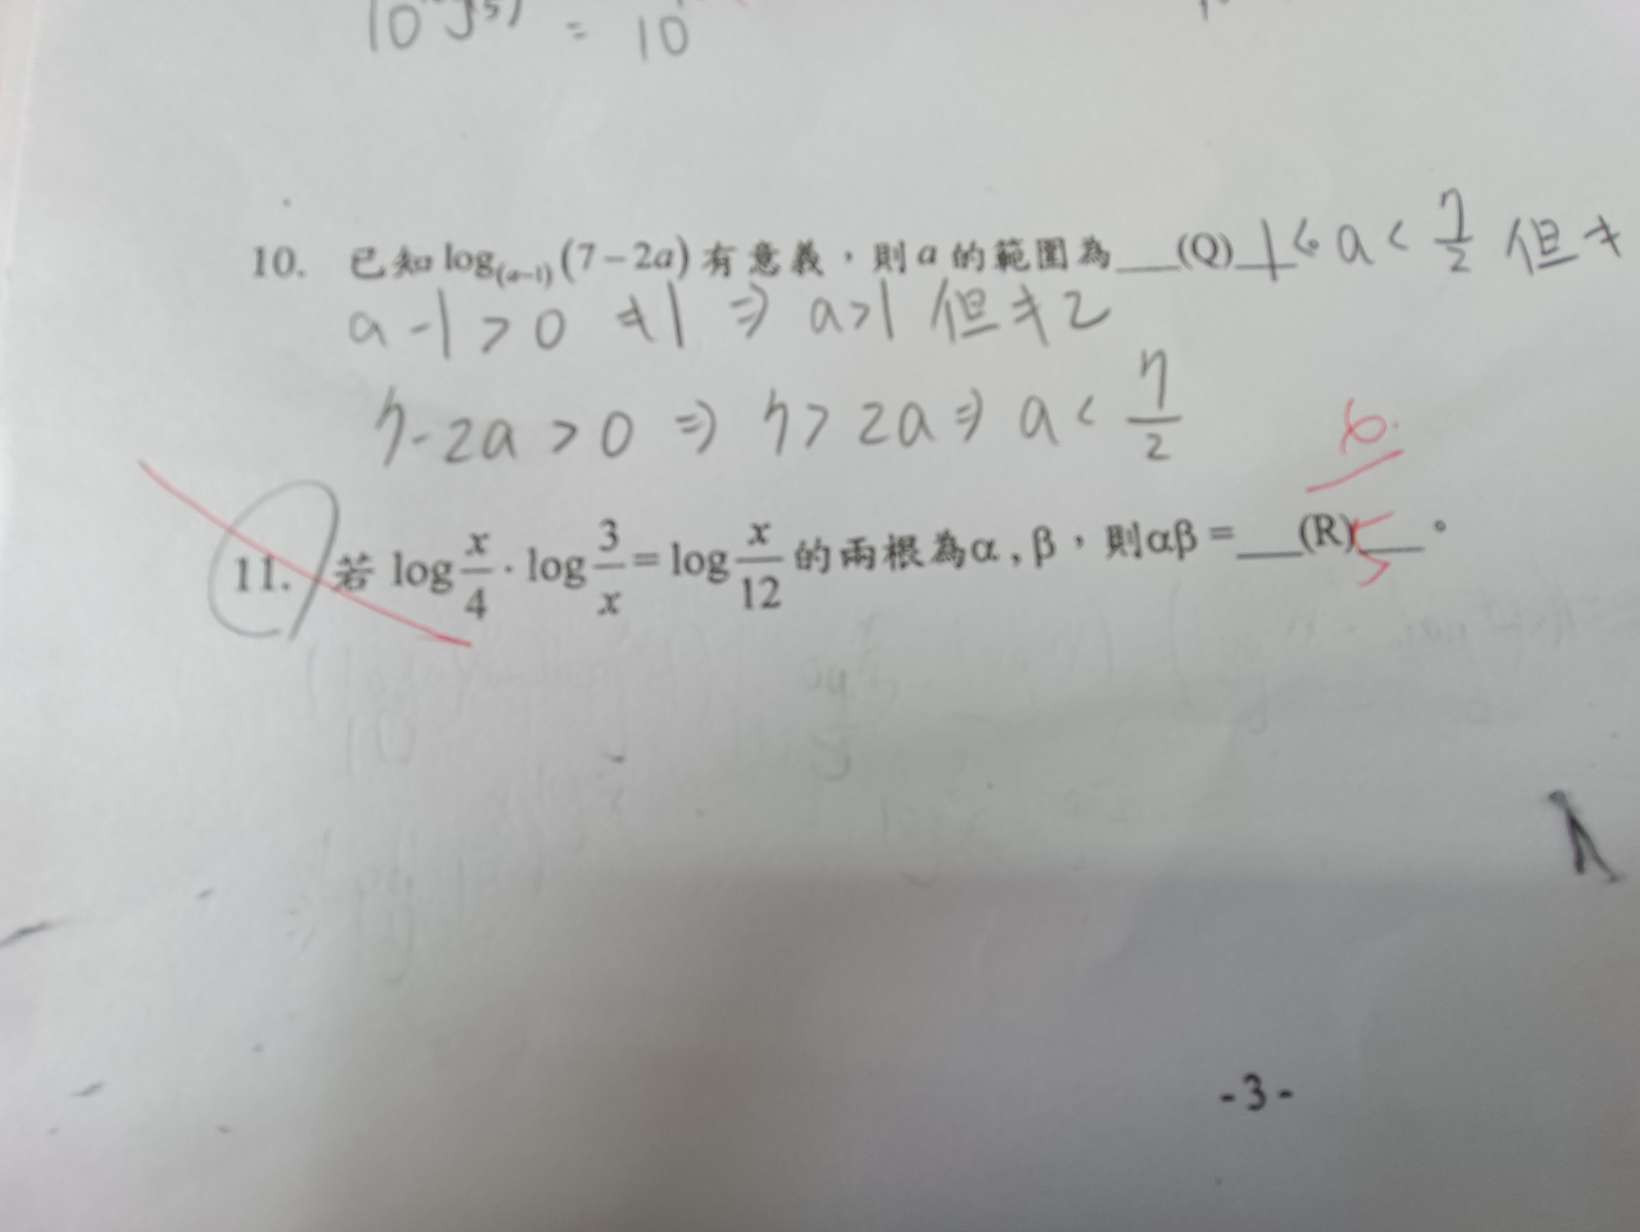 = 10
10. 已知 log₍ₐ₋₁₎(7-2a) 有意義，則 a 的範圍為___(Q)___ 1<a<7/2 但≠
a-1>0 ≠1 ⇒ a>1 但≠2
7-2a>0 ⇒ 7>2a ⇒ a<7/2
6
11. 若 log x/4 · log 3/x = log x/12 的兩根為α,β，則αβ=___(R)___。 5
-3-